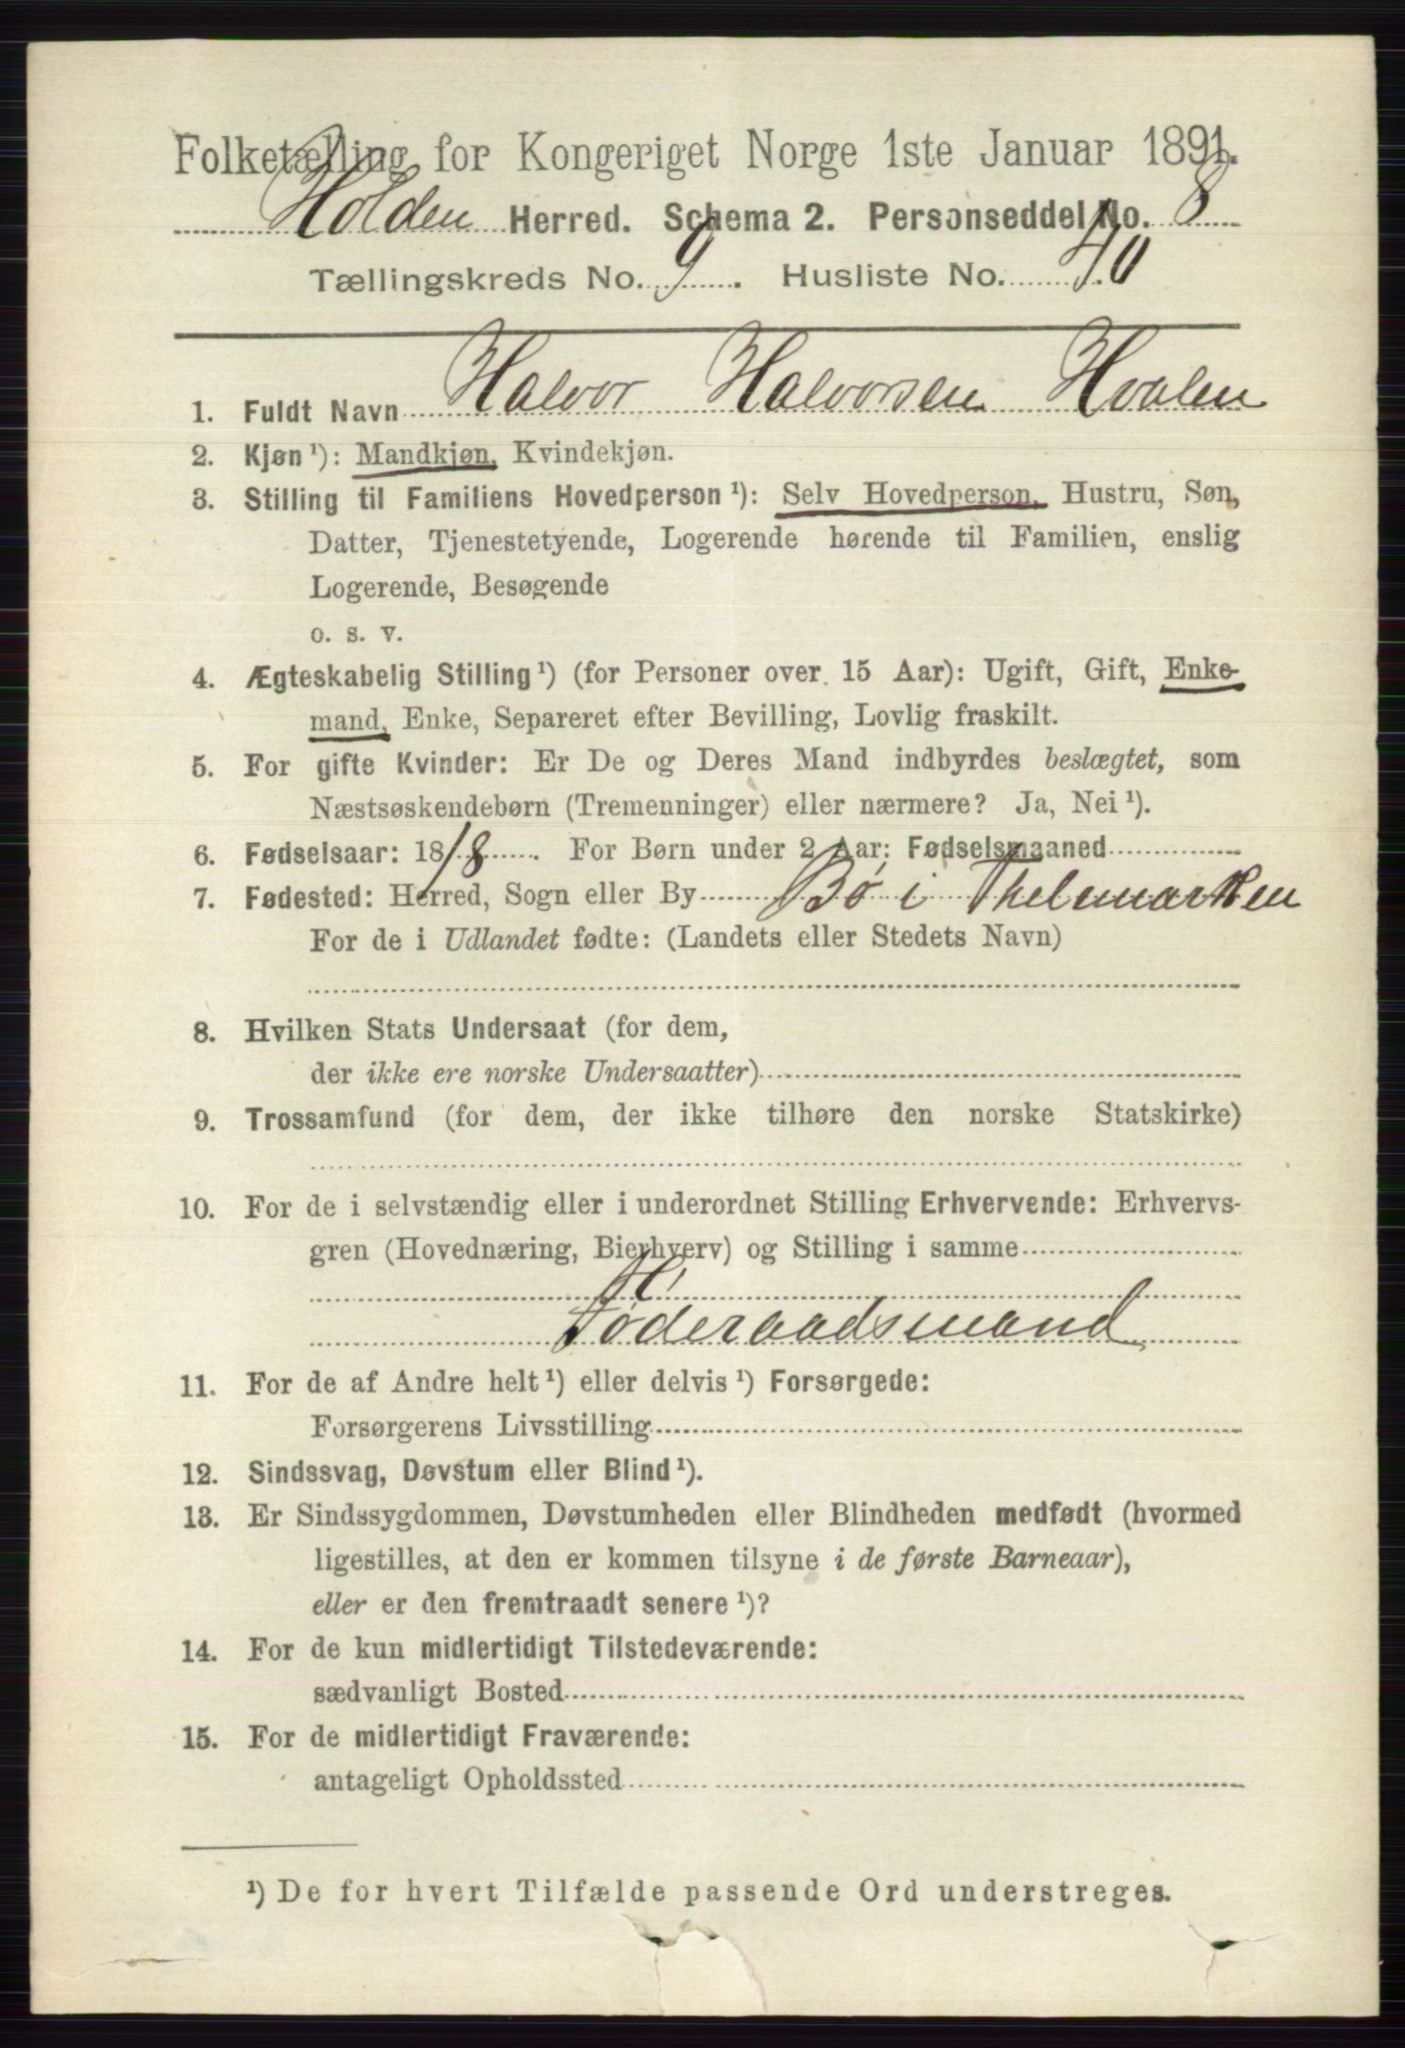 Folketælling for Kongeriget Norge 1ste Januar 1891.
Holden Herred. Schema 2. Personseddel No. 8
Tællingskreds No. 9. Husliste No. 40
1. Fuldt Navn Halvor Halvorsen Hvalen
2. Kjøn ¹): Mandkjøn, Kvindekjøn.
3. Stilling til Familiens Hovedperson ¹): Selv Hovedperson, Hustru, Søn,
Datter, Tjenestetyende, Logerende hørende til Familien, enslig
Logerende, Besøgende
o. s. v.
4. Ægteskabelig Stilling ¹) (for Personer over 15 Aar): Ugift, Gift, Enke-
mand, Enke, Separeret efter Bevilling, Lovlig fraskilt.
5. For gifte Kvinder: Er De og Deres Mand indbyrdes beslægtet, som
Næstsøskendebørn (Tremenninger) eller nærmere? Ja, Nei ¹).
6. Fødselsaar: 1818. For Børn under 2 Aar: Fødselsmaaned
7. Fødested: Herred, Sogn eller By Bø i Thelemarken
For de i Udlandet fødte: (Landets eller Stedets Navn)
8. Hvilken Stats Undersaat (for dem,
der ikke ere norske Undersaatter)
9. Trossamfund (for dem, der ikke tilhøre den norske Statskirke)
10. For de i selvstændig eller i underordnet Stilling Erhvervende: Erhvervs-
gren (Hovednæring, Bierhverv) og Stilling i samme
Föderaadsmand
11. For de af Andre helt ¹) eller delvis ¹) Forsørgede:
Forsørgerens Livsstilling
12. Sindssvag, Døvstum eller Blind ¹).
13. Er Sindssygdommen, Døvstumheden eller Blindheden medfødt (hvormed
ligestilles, at den er kommen tilsyne i de første Barneaar),
eller er den fremtraadt senere ¹)?
14. For de kun midlertidigt Tilstedeværende:
sædvanligt Bosted
15. For de midlertidigt Fraværende:
antageligt Opholdssted
¹) De for hvert Tilfælde passende Ord understreges.